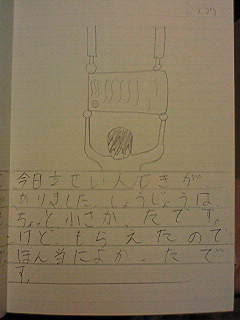 今日½せい人しきが
ありました。しょうじょうは、
ちょっと小さかったです。
けどもらえたので
ほん当によかったで
す。